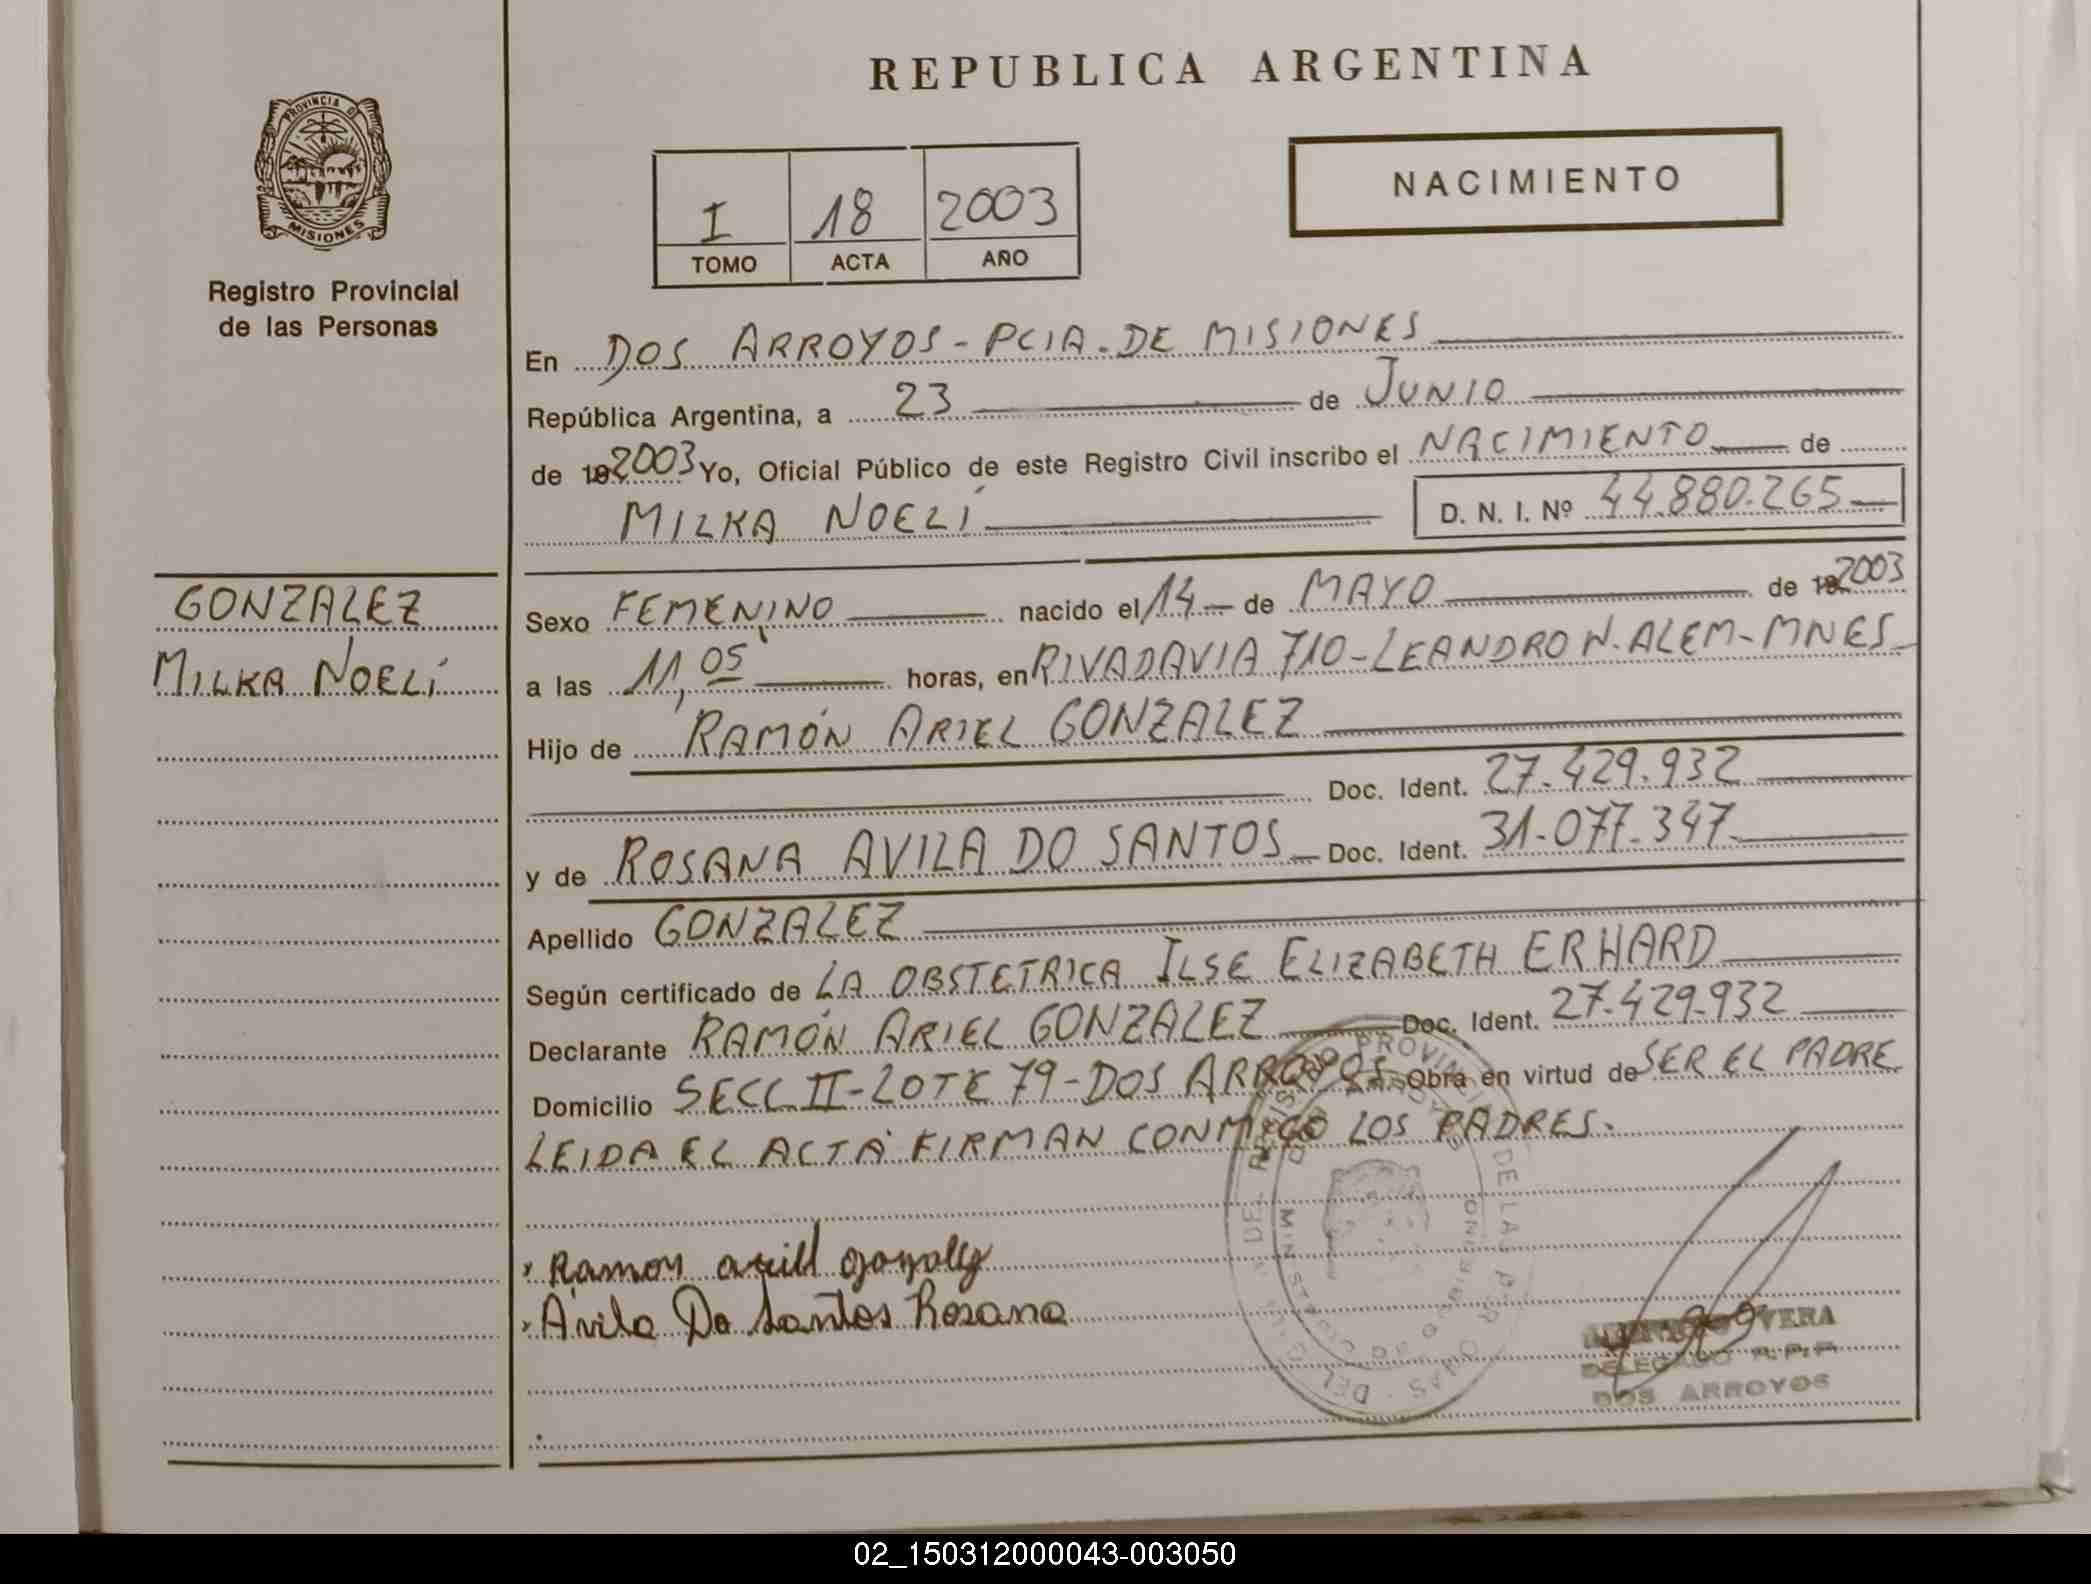 REPUBLICA ARGENTINA
PROVINCIA DE
MISIONES
Registro Provincial
de las Personas
I 18 2003
TOMO ACTA AÑO
NACIMIENTO
En DOS ARROYOS - PCIA. DE MISIONES
República Argentina, a 23 de JUNIO
de 19 2003 Yo, Oficial Público de este Registro Civil inscribo el NACIMIENTO de
MILKA NOELÍ D. N. I. Nº 44.880.265
GONZALEZ
MILKA NOELÍ
Sexo FEMENINO nacido el 14 de MAYO de 19 2003
a las 11,05 horas, en RIVADAVIA 710-LEANDRO N. ALEM-MNES
Hijo de RAMÓN ARIEL GONZALEZ
Doc. Ident. 27.429.932
y de ROSANA AVILA DO SANTOS Doc. Ident. 31.077.347
Apellido GONZALEZ
Según certificado de LA OBSTETRICA ILSE ELIZABETH ERHARD
Declarante RAMÓN ARIEL GONZALEZ Doc. Ident. 27.429.932
Domicilio SECC II-LOTE 79-DOS ARROYOS Obra en virtud de SER EL PADRE
LEIDA EL ACTA FIRMAN CONMIGO LOS PADRES.
Ramon
Avila Do Santos Rosana
VERA
DELEGADO R.P.P.
DOS ARROYOS
02_150312000043-003050